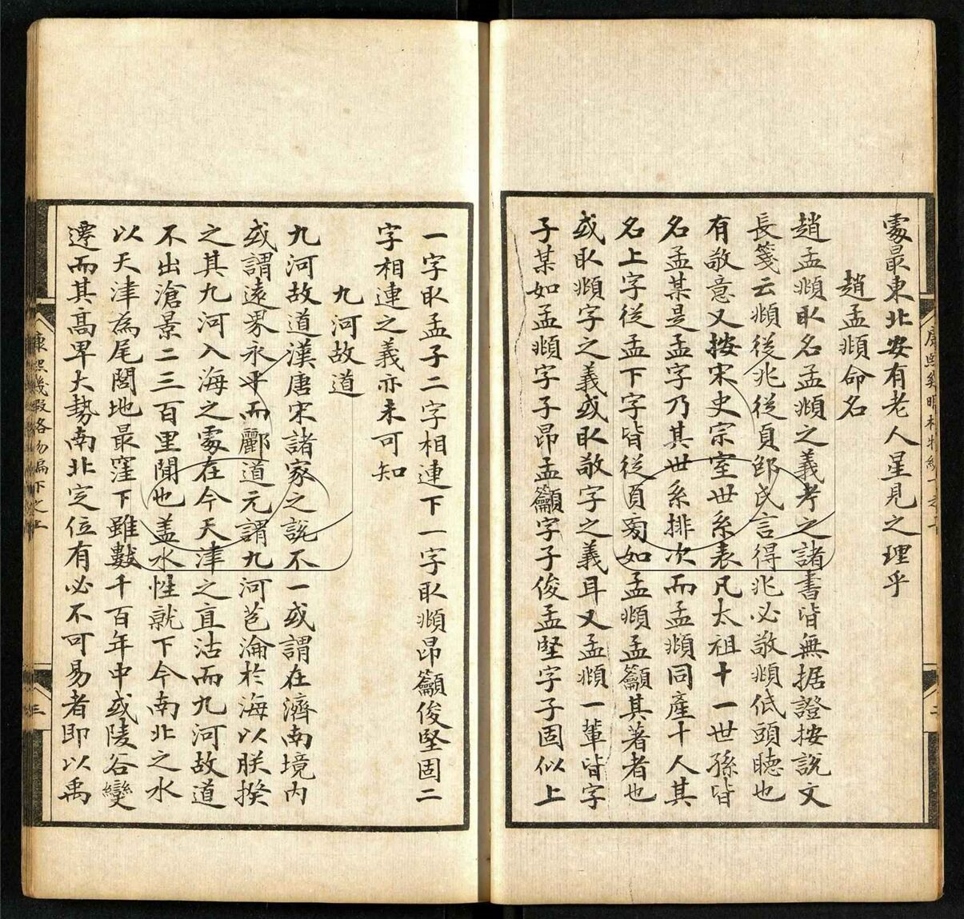 處最東北安有老人星見之理乎
趙孟頫命名
趙孟頫取名孟頫之義考之諸書皆無据證按說文
長箋云頫從兆從頁郤氏言得兆必敬頫低頭聽也
有敬意又按宋史宗室世系表凡太祖十一世孫皆
名孟某是孟字乃其世系排次而孟頫同產十人其
名上字從孟下字皆從頁旁如孟頫孟籲其著者也
或取頫字之義或取敬字之義耳又孟頫一輩皆字
子某如孟頫字子昂孟籲字子俊孟堅字子固似上
一字取孟子二字相連下一字取頫昂籲俊堅固二
字相連之義亦未可知
九河故道
九河故道漢唐宋諸家之說不一或謂在濟南境內
或謂遠界永平而酈道元謂九河苞淪於海以朕揆
之其九河入海之處在今天津之直沽而九河故道
不出滄景二三百里闌也盖水性就下今南北之水
以天津為尾閭地最窪下雖數千百年中或陵谷變
遷而其高畀大勢南北定位有必不可易者即以禹
康熙幾暇格物編下之上
三